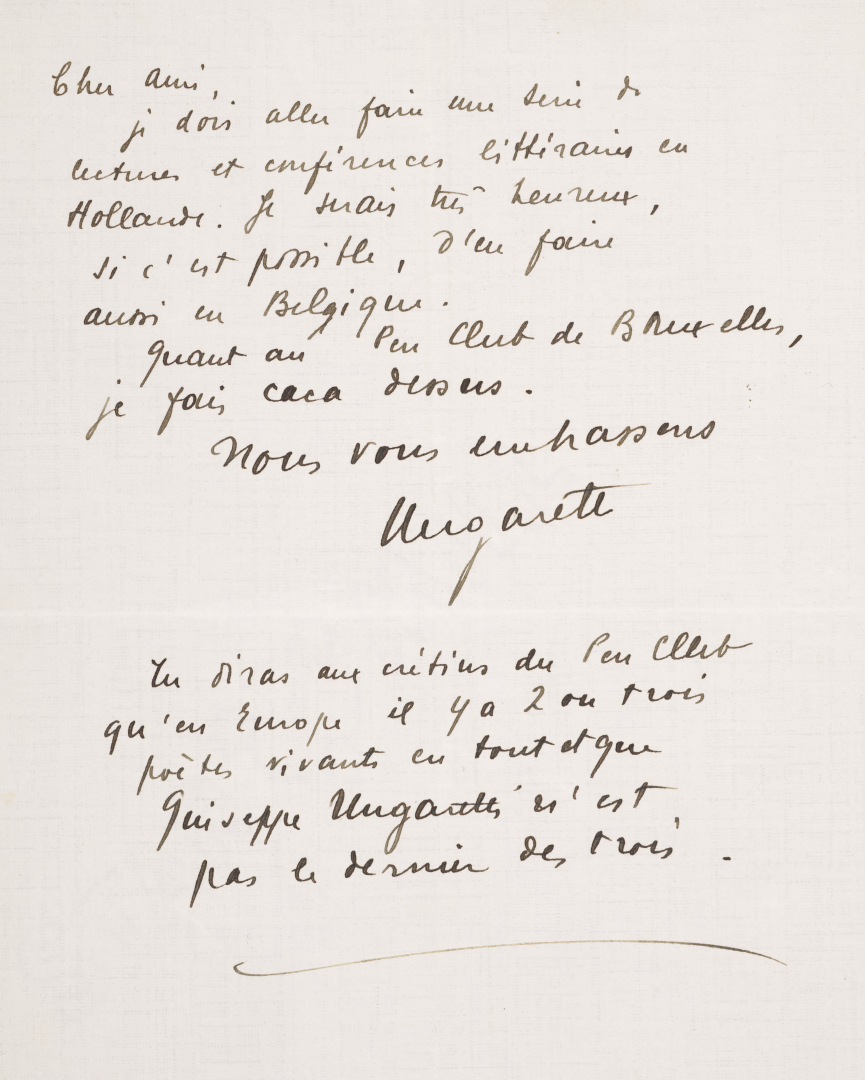 Cher ami,
je dois aller faire une série de
lectures et conférences littéraires en
Hollande. Je serais très heureux,
si c'est possible, d'en faire
aussi en Belgique.
Quant au Pen Club de Bruxelles,
je fais caca dessus.
Nous vous embrassons
Ungaretti
Tu diras aux crétins du Pen Club
qu'en Europe il y a 2 ou trois
poètes vivants en tout et que
Guiseppe Ungaretti n'est
pas le dernier des trois.